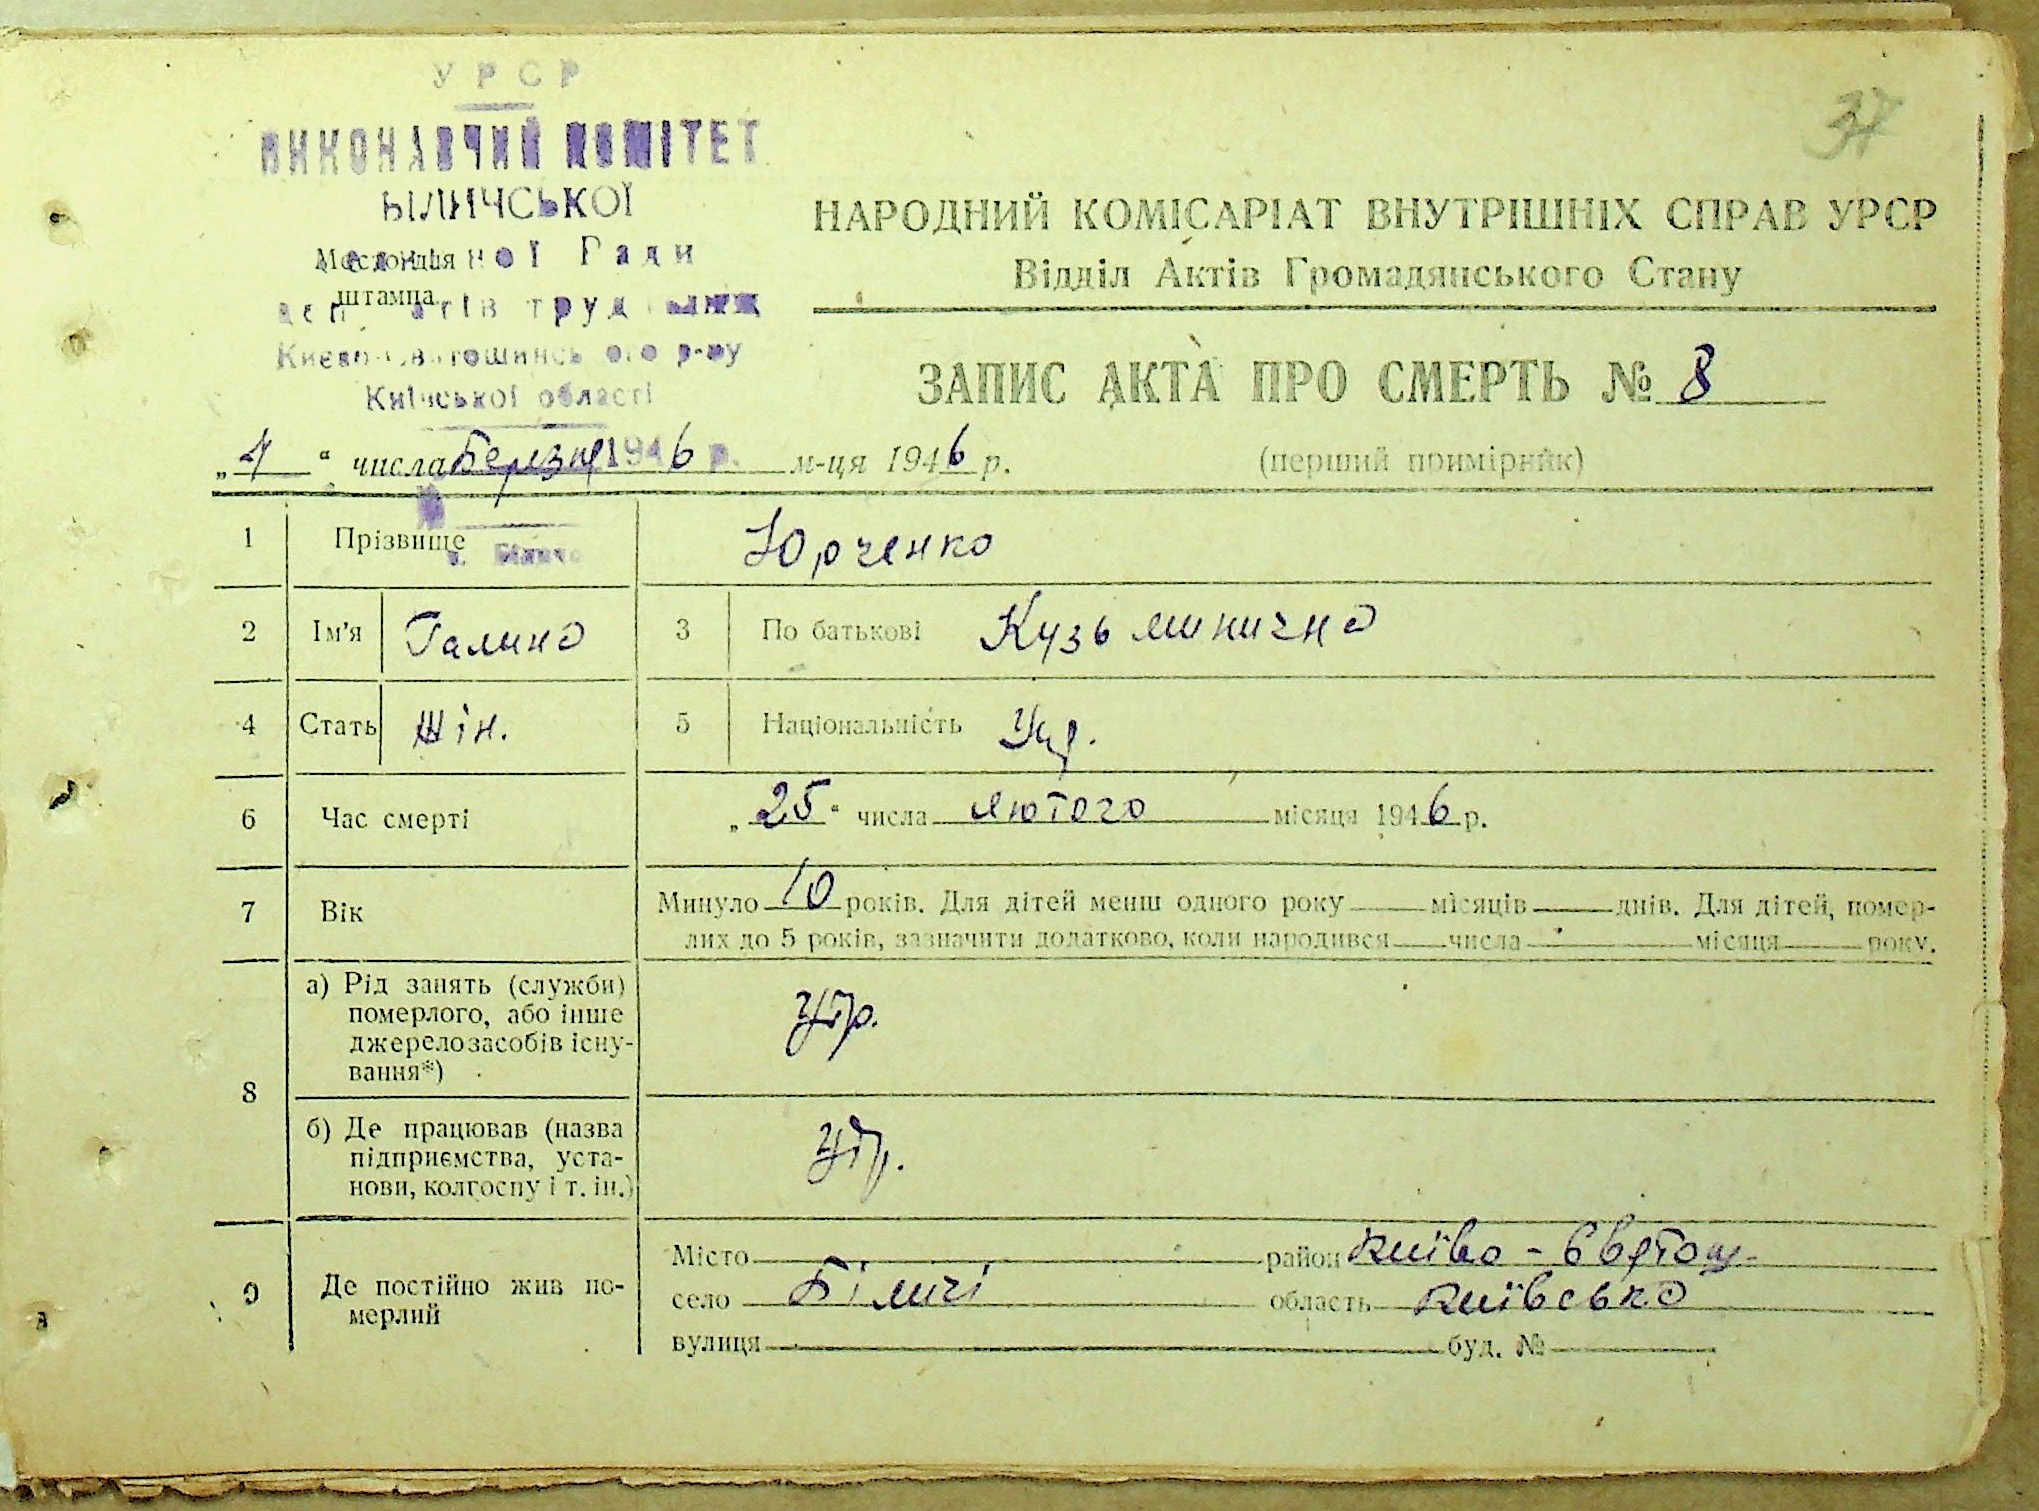 37
УРСР
ВИКОНАВЧИЙ КОМІТЕТ
БІЛИЧСЬКОЇ
Ради
штампа
Києво-Святошинського р-ну
Київської області
НАРОДНИЙ КОМІСАРІАТ ВНУТРІШНІХ СПРАВ УРСР
Відділ Актів Громадянського Стану
ЗАПИС АКТА ПРО СМЕРТЬ № 8
(перший примірник)
„ 4 “ числа Березня 1946 р. м-ця 1946 р.
1 Прізвище Юрченко
с. Біличі
2 Ім'я Галина 3 По батькові Кузьминична
4 Стать Жін. 5 Національність Укр.
6 Час смерті „ 25 “ числа лютого місяця 1946 р.
7 Вік Минуло 10 років. Для дітей менш одного року місяців днів. Для дітей, помер-
лих до 5 років, зазначити додатково, коли народився числа місяця року.
8 а) Рід занять (служби)
померлого, або інше
джерело засобів існу-
вання*)
утр.
б) Де працював (назва
підприємства, уста-
нови, колгоспу і т. ін.)
утр.
9 Де постійно жив по-
мерлий
Місто район Київо-Святош.
село Біличі область Київська
вулиця буд. №